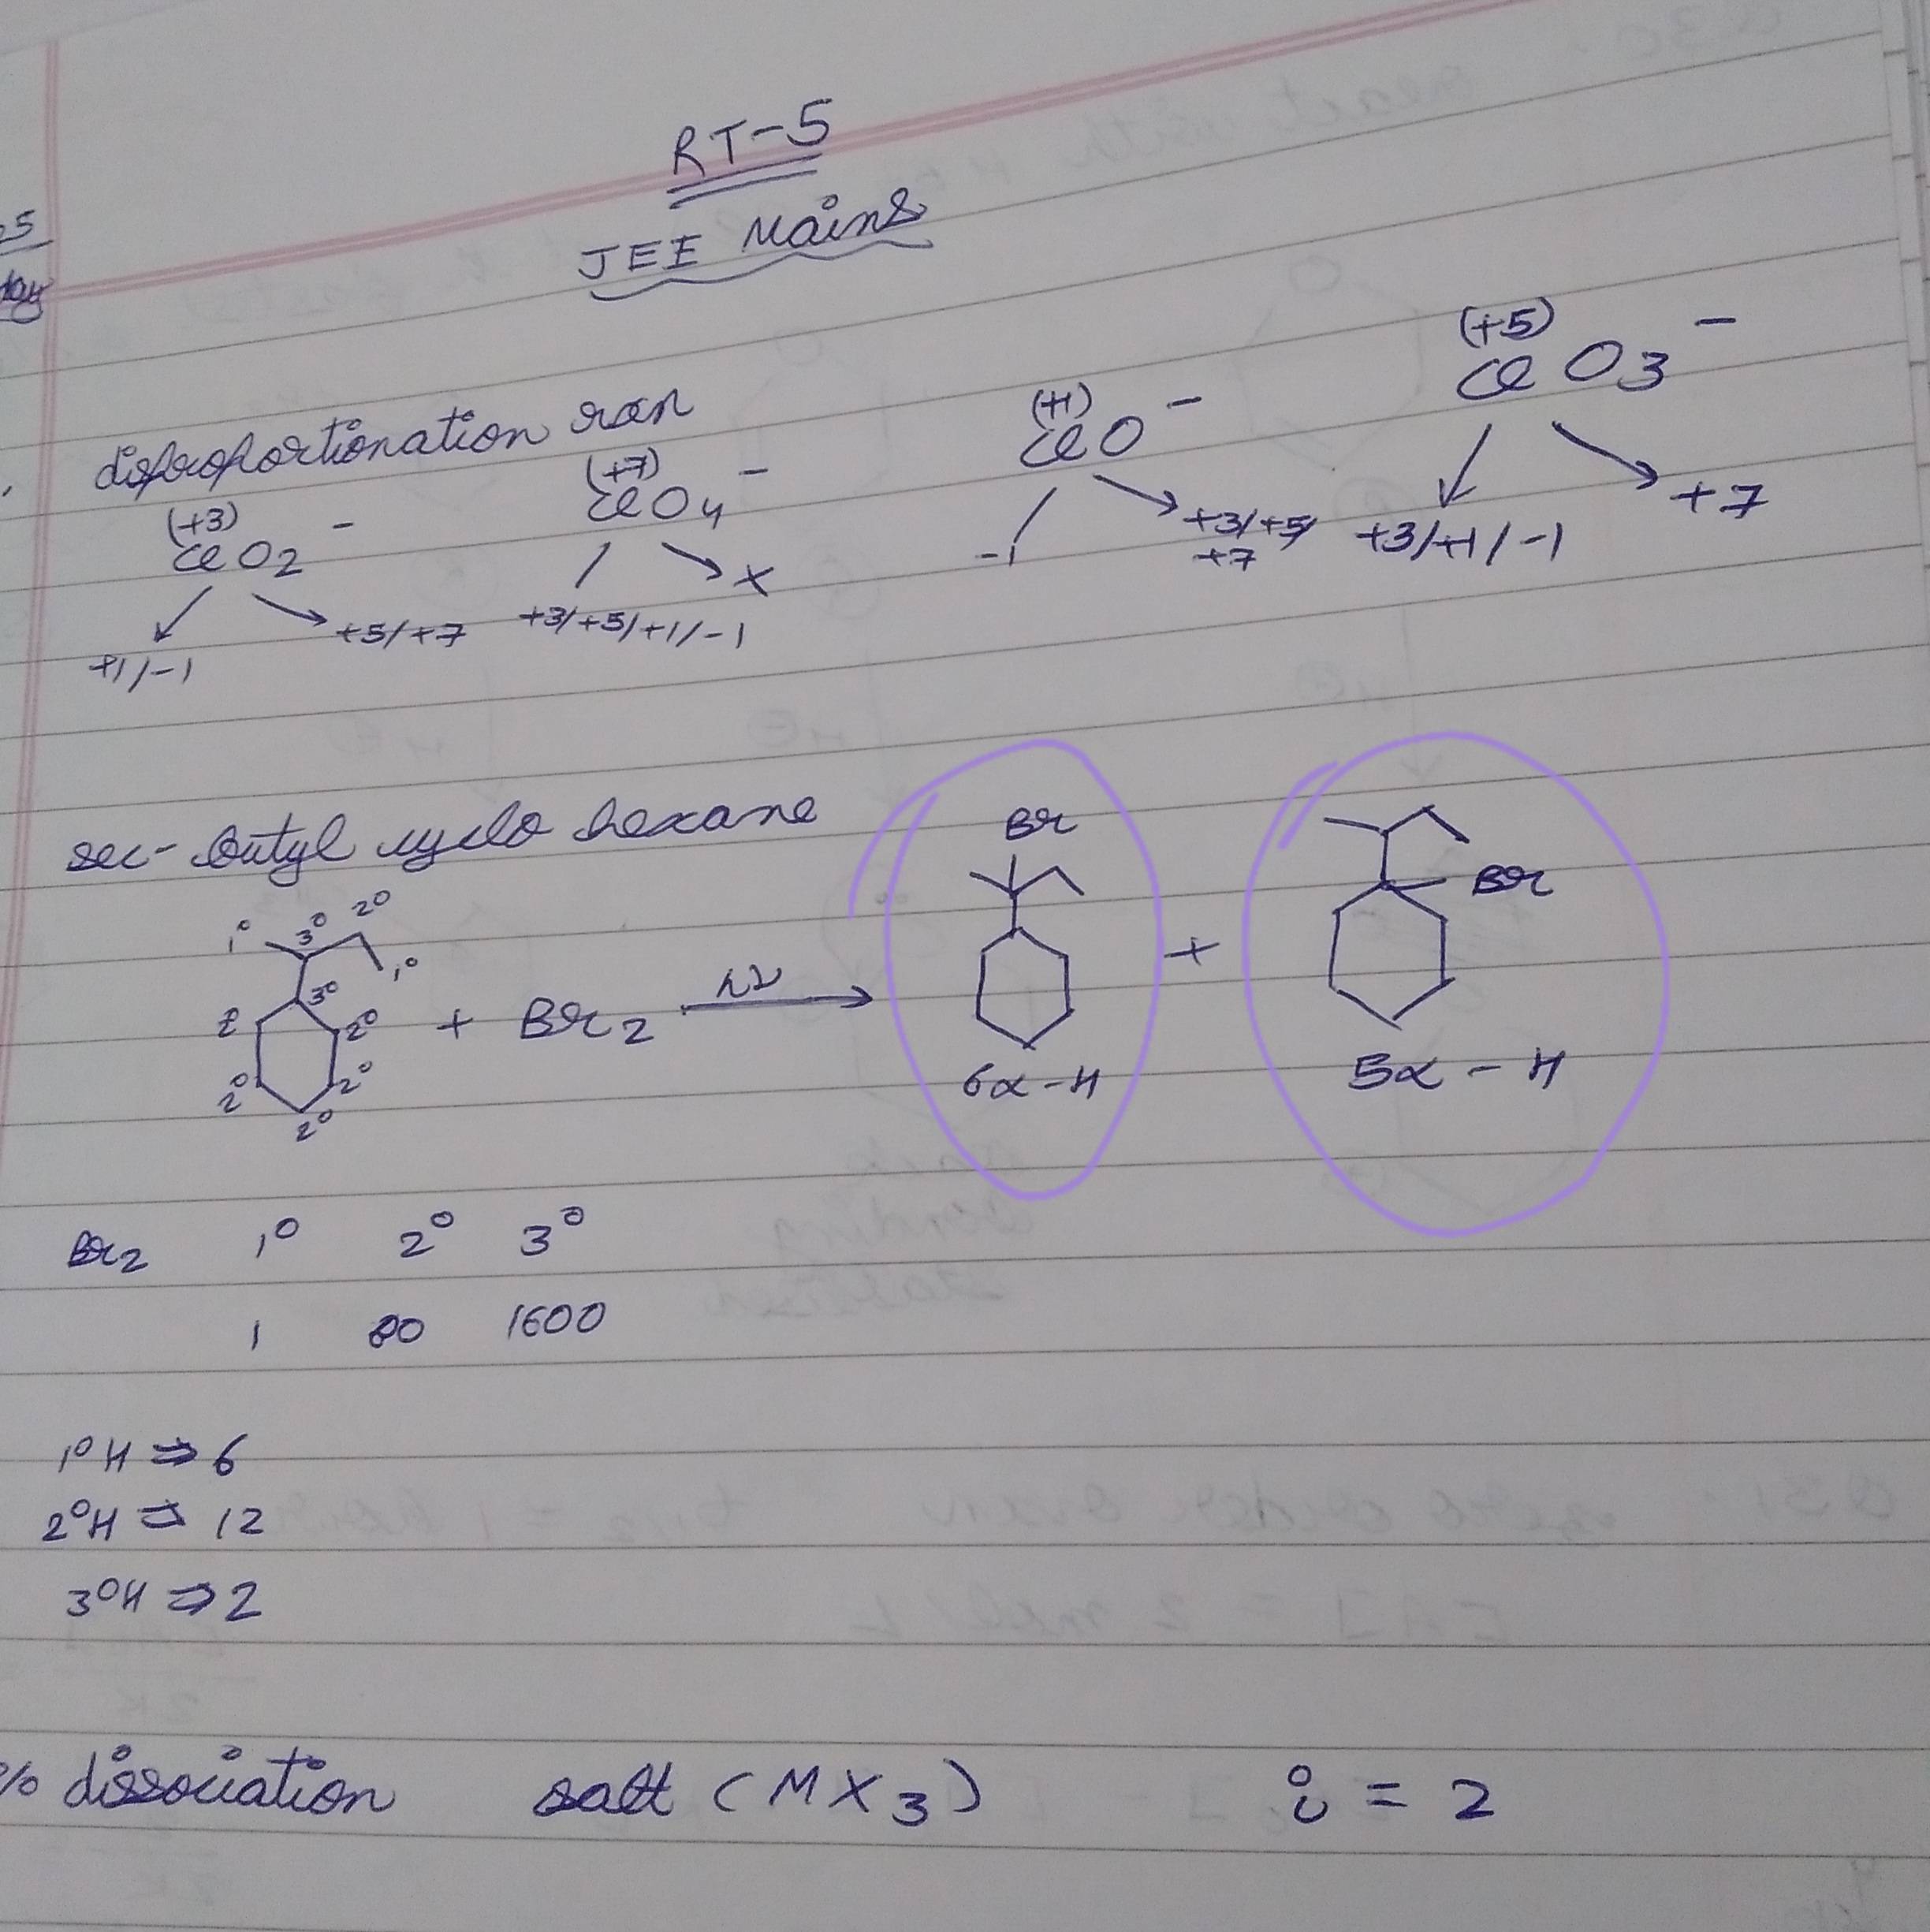 RT-5
JEE Mains
25
day
disproportionation rxn
(+3) (+7) (+1) (+5)
ClO2⁻ ClO4⁻ ClO⁻ ClO3⁻
+1/-1 +5/+7 +3/+5/+1/-1 x -1 +3/+5/ +3/+1/-1 +7
+7
sec-butyl cyclo hexane
1° 3° 2° 1° Br Br
3°
2° 2° + Br2 hν +
2° 2° 6α-H 5α-H
2°
Br2 1° 2° 3°
1 80 1600
1°H ⇒ 6
2°H ⇒ 12
3°H ⇒ 2
% dissociation salt (MX3) i = 2